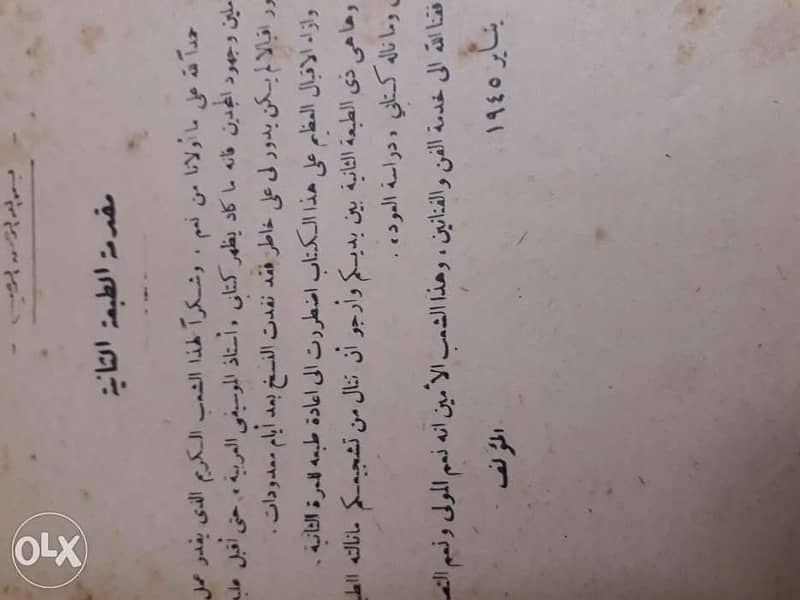 بسم الله الرحمن الرحيم
مقدمة الطبعة الثانية
حمداً لله على ما أولانا من نعم ، وشكراً لهذا الشعب الكريم الذى يقدر عمل
ملين وجهود المجدين فانه ما كاد يظهر كتابى « أستاذ الموسيقى العربية » حتى أقبل
ور اقبالا لم يكن يدور لى على خاطر فقد نفدت النسخ بعد أيام معدودات .
وازاء الاقبال العظيم على هذا الكتاب اضطررت الى اعادة طبعه للمرة الثانية .
وها هى ذى الطبعة الثانية بين يديكم وأرجو أن تنال من تشجيعكم ما نالته
وما ناله كتابي « دراسة العود » .
فقنا الله الى خدمة الفن والفنانين ، وهذا الشعب الأمين انه نعم المولى ونعم
يناير ١٩٤٥
المؤلف
OLX